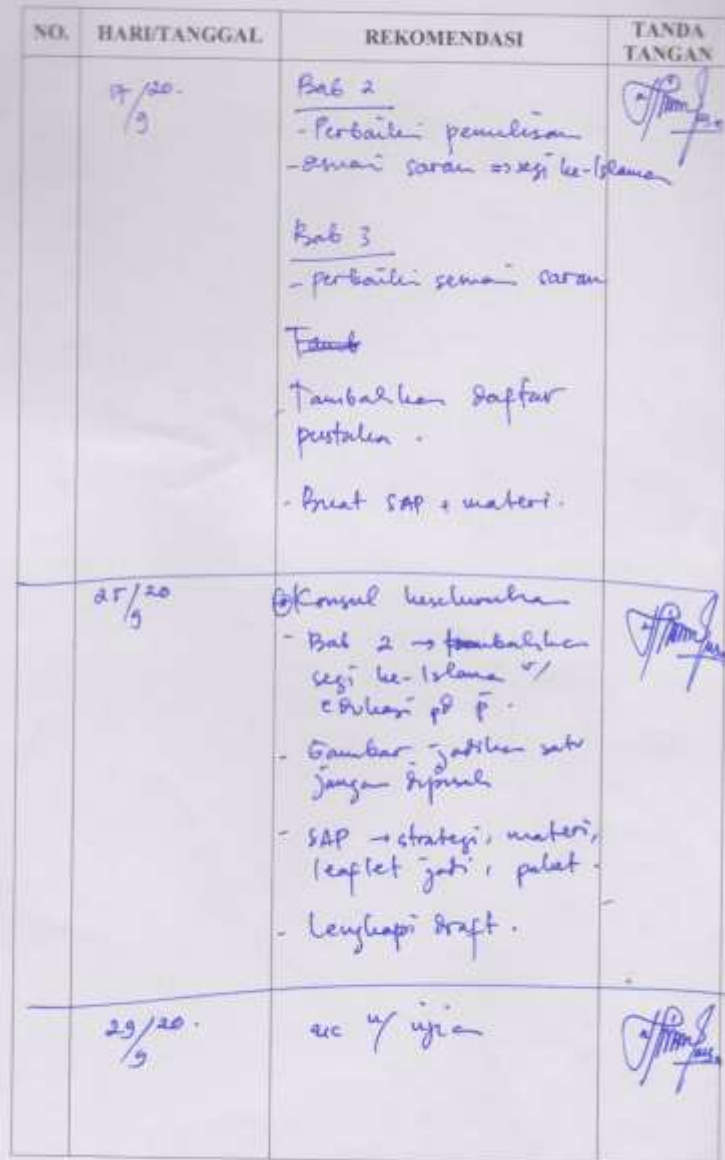 NO. HARI/TANGGAL REKOMENDASI TANDA TANGAN
17/9 20. Bab 2
- Perbaiki penulisan
- sesuai saran => segi ke-Islaman
Bab 3
- perbaiki sesuai saran
Tamb
Tambahkan daftar
pustaka .
- Buat SAP + materi.
25/9 20 Konsul keseluruhan
- Bab 2 → tambahkan
segi ke-Islama u/
edukasi pd p̄ .
- Gambar jadikan satu
jangan dipisah
- SAP → strategi, materi,
leaflet jadi 1 paket .
- Lengkapi draft .
29/9 20. acc u/ ujian